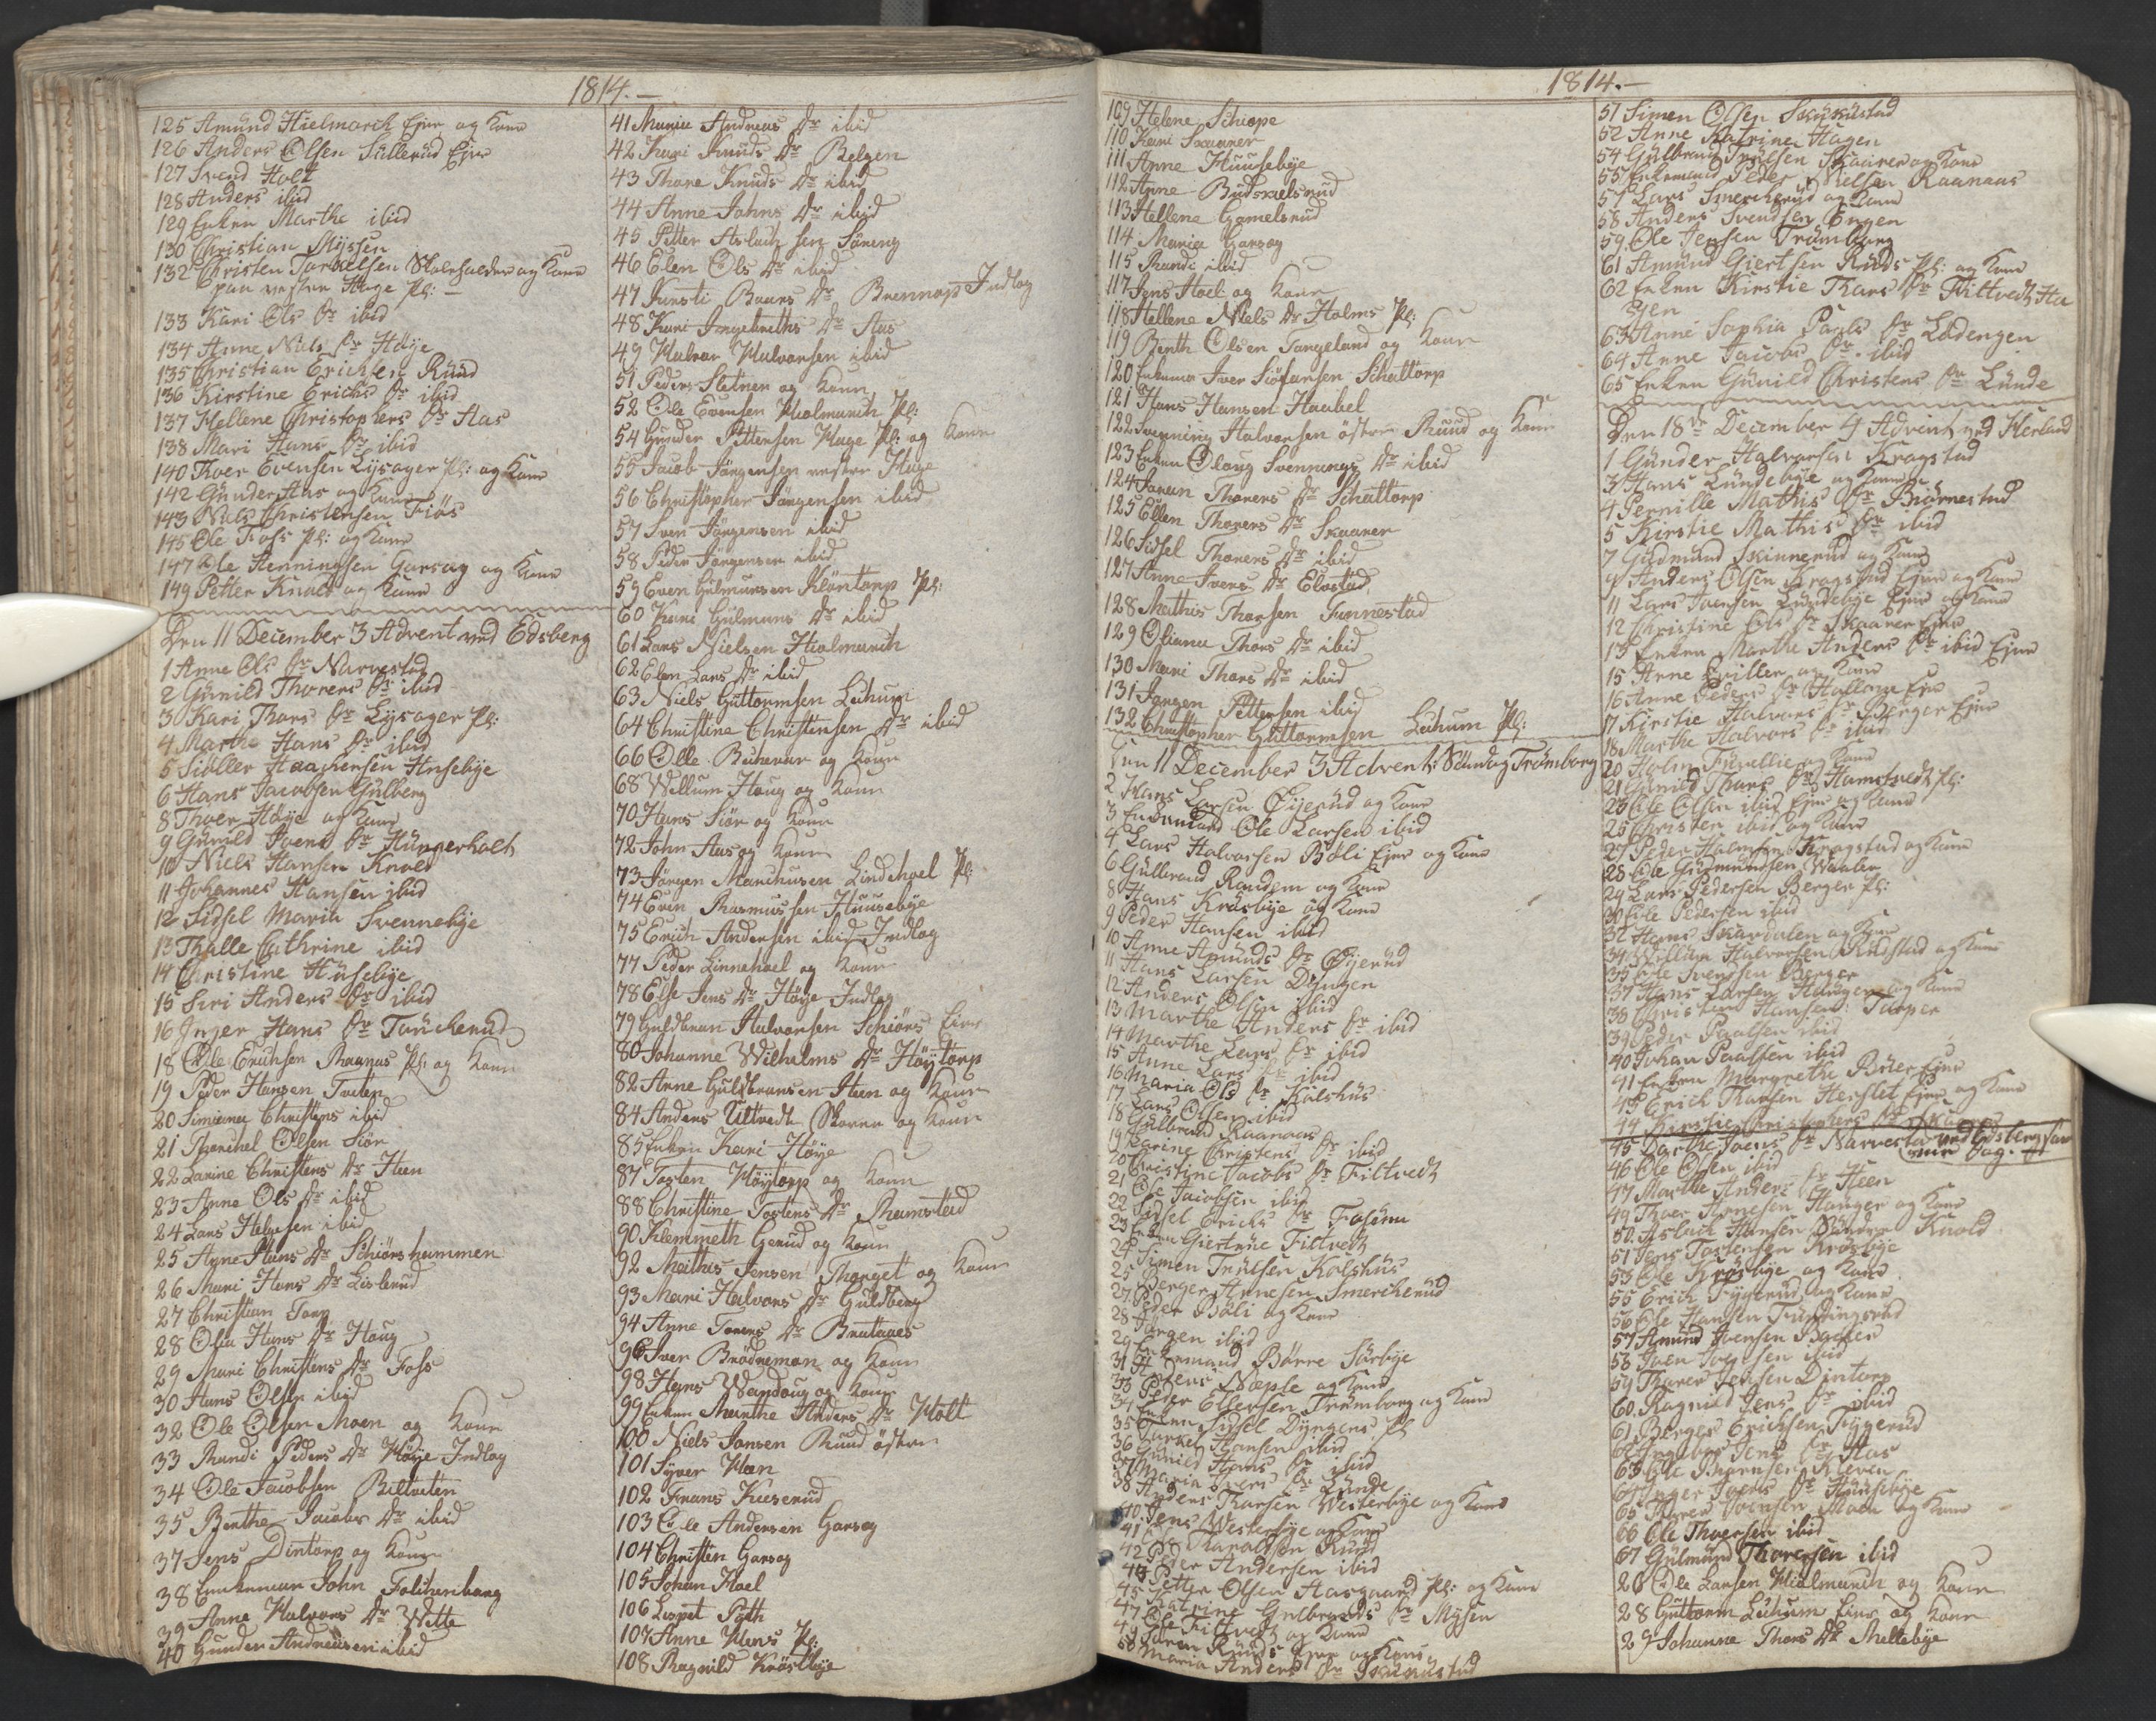 1814.-
125 Amund Hielmarck Ejer og Kone
126 Anders Olsen Sullerud Ejer
127 Svend Holt
128 Anders ibid
129 Enken Marthe ibid
130 Christian Myssen
132 Christen Torkelsen Skoleholder og Kone
paa vestre Huge Pl: -
133 Kari Ols Dr ibid
134 Anne Niels Dr Høye
135 Christian Erichsen Ruud
136 Kirstine Erichs Dr ibid
137 Hellene Christophers Dr Aas
138 Mari Hans Dr ibid
140 Thoer Evensen Lysager Pl: og Kone
142 Gunder Aas og Kone
143 Niels Christensen Fiøs
145 Ole Foss Pl: og Kone
147 Ole Henningsen Garsæg og Kone
149 Petter Knold og Kone
Den 11 December 3 Advent ved Edsberg
1 Anne Ols Dr Narvestad
2 Gunild Thorers Dr ibid
3 Kari Thors Dr Lysager Pl:
4 Marthe Hans Dr ibid
5 Haachensen Husebye
6 Hans Jacobsen Gulberg
8 Thoer Høye og Kone
9 Gunild Ivers Dr Hungerholt
10 Niels Hansen Knold
11 Johannes Hansen ibid
12 Sidsel Maria Svennebye
13 Thalle Cathrine ibid
14 Christine Husebye
15 Siri Anders Dr ibid
16 Inger Hans Dr Tuuckerud
18 Ole Erichsen Raanas Pl: og Kone
19 Peder Hansen Tveten
20 Simiena Christens ibid
21 Thorchel Olsen Siør
22 Larine Christens Dr Heen
23 Anne Ols Dr ibid
24 Lars Helgesen ibid
25 Anne Hans Dr Schiørshammen
26 Mari Hans Dr Lislerud
27 Christian Torp
28 Olia Hans Dr Houg
29 Mari Christens Dr Foss
30 Hans Olsen ibid
32 Ole Olsen Moen og Kone
33 Randi Peders Dr Høye Indlog
34 Ole Jacobsen Biltveten
35 Berthe Jacobs Dr ibid
37 Jens Dintorp og Kone
38 Enkeman John Folckenborg
39 Anne Halvors Dr Wette
40 Gunder Andreasen ibid
41 Maria Andreas Dr ibid
42 Kari Knuds Dr Belgen
43 Thore Knuds Dr ibid
44 Anne Johns Dr ibid
45 Petter Aslach sen Søreng
46 Elen Ols Dr ibid
47 Kirsti Baars Dr Brennop Indlog
48 Kari Ingebreths Dr Aas
49 Halvor Halvorsen ibid
51 Peder Sletner og Kone
52 Ole Evensen Hielmarch Pl:
54 Gunder Pettersen Huge Pl: og Kone
55 Jacob Jørgensen vestre Huge
56 Christopher Jørgensen ibid
57 Iver Jørgensen ibid
58 Peder Jørgensen ibid
59 Even Gulmunsen Kløntorp Pl:
60 Kari Gulmuns Dr ibid
61 Lars Nielsen Hielmarch
62 Elen Lars Dr ibid
63 Niels Guttormsen Lehum
64 Christine Christensen Dr ibid
66 Olle Buheran og Kone
68 Willum Houg og Kone
70 Hans Siør og Kone
72 John Aas og Kone
73 Jørgen Marchusen Lindehoel Pl:
74 Even Rasmussen Huusebye
75 Erich Andersen ibid Indlog
77 Peder Linnehoel og Kone
78 Else Jens Dr Høye Indlog
79 Guldbran Halvorsen Schiørs Eier
80 Johanne Wilhelms Dr Høytorp
82 Arne Guldbransen Heen og Kone
84 Anders Ultvedt Skoven og Kone
85 Enken Kari Høye
87 Torsten Høytorp og Kone
88 Christine Torstens Dr Ramstad
90 Klemmeth Gerud og Kone
92 Mathis Jensen Thorget og Kone
93 Mari Halvors Dr Guldberg
94 Anne Torers Dr Brataaes
96 Iver Brødremon og Kone
98 Hans Wandoug og Kone
99 Enken Marthe Anders Dr Holt
100 Niels Jansen Ruud østre
101 Syver Heen
102 Frans Kuserud
103 Ole Andersen Garseg
104 Christen Garseg
105 Johan Hoel
106 Lispet Pøth
107 Anne Hens Pl:
108 Ragnild Krosbye
1814.-
109 Helene Schiope
110 Kari Skaarer
111 Anne Huusebye
112 Anne Budskielsrud
113 Hellene Gamelsrud
114 Maria Garseg
115 Randi ibid
117 Jens Hoel og Kone
118 Hellene Niels Dr Holms Pl:
119 Benth Olsen Tangeland og Kone
120 Enkeman Iver Schattorp
121 Hans Hansen Haabel
122 Svenning Halvorsen østre Ruud og Kone
123 Enken Olaug Svennings Dr ibid
124 Thorers Dr Schattorp
125 Ellen Thorers Dr Skaarer
126 Sidsel Thorers Dr ibid
127 Anne Ivers Dr Elvestad
128 Mathis Thorsen Tunnestad
129 Oliana Thors Dr ibid
130 Mari Thors Dr ibid
131 Jørgen Pettersen ibid
132 Christopher Guttormsen Lehum Pl:
Den 11 December 3 Advent: Søndag Trømborg
2 Hans Larsen Øyerud og Kone
3 Enkemand Ole Larsen ibid
4 Lars Halvorsen Bøli Ejer og Kone
6 Gulbrand Randem og Kone
8 Hans Krosbye og Kone
9 Peder Hansen ibid
10 Anne Amunds Dr Øyerud
11 Hans Larsen Dyngen
12 Anders Olsen ibid
13 Marthe Anders Dr ibid
14 Marthe Lars Dr ibid
15 Anne Lars Dr ibid
16 Maria Ols Dr Kolshus
17 Lars Olsen ibid
18 Gulbrand Raanaas
19 Karine Christens Dr ibid
20 Christine Jacobs Dr Fittvedt
21 Ole Jacobsen ibid
22 Sidsel Erichs Dr Fosum
23 Enken Giertrue Fittvedt
24 Simen Truelsen Kolshus
25 Berger Arnesen Smerckerud
27 Peder Bøli og Kone
28 Jørgen ibid
29 Enkemand Børre Sørbye
31 Jens Næple og Kone
33 Peder Ellersen Trømborg og Kone
34 Enken Sidsel Dyngens Pl
35 Torkel Hansen ibid
36 Gunild Hans Dr ibid
37 Maria Ivers Dr Lunde
38 Anders Thorsen Westerbye og Kone
40 Jens Westerbye og Kone
41 Ole Haraldsen Ruud
42 Peder Andersen ibid
43 Petter Olsen Aasgaard Pl: og Kone
45 Katrine Gulbrands Dr Mysen
47 Ole Fittvedt og Kone
49 Ruuds Ejer og Kone
50 Maria Anders Dr Skuckestad
51 Simen Olsen Skuckestad
52 Anne Katrine Hagen
54 Gulbrand Truelsen Skaarer og Kone
55 Enkemand Peder Nielsen Raanaas
57 Lars Smerckerud og Kone
58 Anders Svendsen Engen
59 Ole Jensen Trømborg
61 Amund Giertsen Ruuds Pl: og Kone
62 Enken Kirstie Thors Dr Fittvedt Ha
gen
63 Anne Sophia Pauls Dr Ladengen
64 Anne Jacobs Dr ibid
65 Enken Gunild Christens Dr Lunde
Den 18de December 4 Advent ved Herland
1 Gunder Halvorsen Kragstad
3 Hans Lundebye og Kone
4 Pernille Mathis Dr Biørnestad
5 Kirstie Mathis Dr ibid
7 Gudmund Skinnerud og Kone
9 Anders Olsen Kragstad Ejer og Kone
11 Lars Jacobsen Lundebye Ejer og Kone
12 Christine Ols Dr Skaarer Ejer
13 Enken Marthe Anders Dr ibid Ejer
15 Arne og Kone
16 Anne Peders Dr Ejer
17 Kirstie Halvors Dr Berger Ejer
18 Marthe Halvors Dr ibid
20 Holm og Kone
21 Gunild Thors Dr Hamstvedt Pl:
23 Ole Olsen ibid Ejer og Kone
25 Christen ibid og Kone
27 Peder Kragstad og Kone
28 Ole Gudmundsen Waaler
29 Lars Pedersen Berger Pl:
30 Ole Pedersen ibid
32 Hans Skardalen og Kone
34 Willum Halvorsen og Kone
35 Ole Svensen Berger
37 Hans Larsen Hunger og Kone
38 Christen Hansen Tasper
39 Peder Paalsen ibid
40 Johan Paalsen ibid
41 Enken Margrethe Ejer
43 Erich Thorsen Herslet Ejer og Kone
44 Kirstie Christophers Dr
45 Dorthe Joens Dr Narvestad ved Edsberg sam
me Dag.
46 Ole Olsen ibid
47 Marthe Anders Dr Heen
49 Thoer Arnesen Hunger og Kone
50 Aslach Hansen Knold
51 Jens Torstensen Krosbye
53 Ole Krosbye og Kone
55 Erich Fygerud og Kone
56 Ole Hansen
57 Amund Joensen Backer
58 Joen Joensen ibid
59 Thorer Jensen Dintorp
60 Ragnild Jens Dr ibid
61 Berger Erichsen Fygerud
62 Ingebor Jens Dr Aas
63 Ole Biørnsen Kleven
64 Inger Joens Dr Huusebye
65 Thorer Joensen Moen og Kone
66 Ole Thoersen ibid
67 Gulmund Thoresen ibid
26 Ole Larsen Hielmarch og Kone
28 Guttorm Lehum Eier og Kone
29 Johanne Thors Dr Meltebye